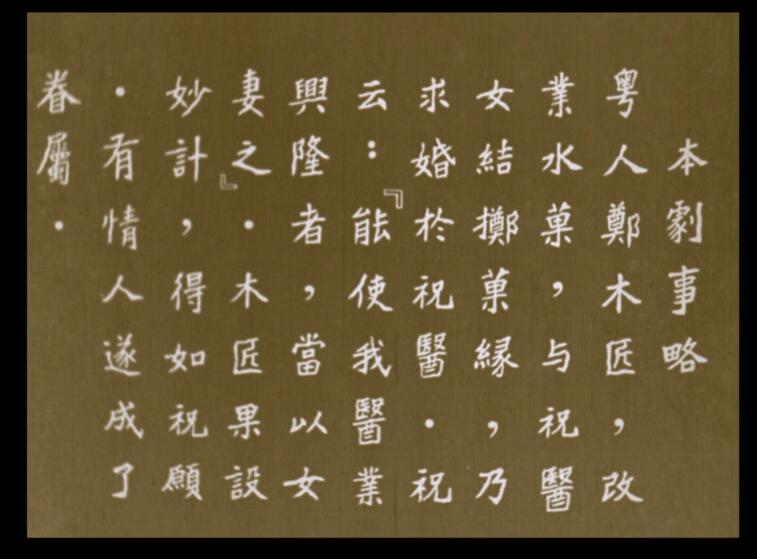 本劇事略
粵人鄭木匠，改
業水菓，与祝醫
女結擲菓緣，乃
求婚於祝醫．祝
云：『能使我醫業
興隆者，當以女
妻之』．木匠果設
妙計，得如祝願
．有情人遂成了
眷屬．